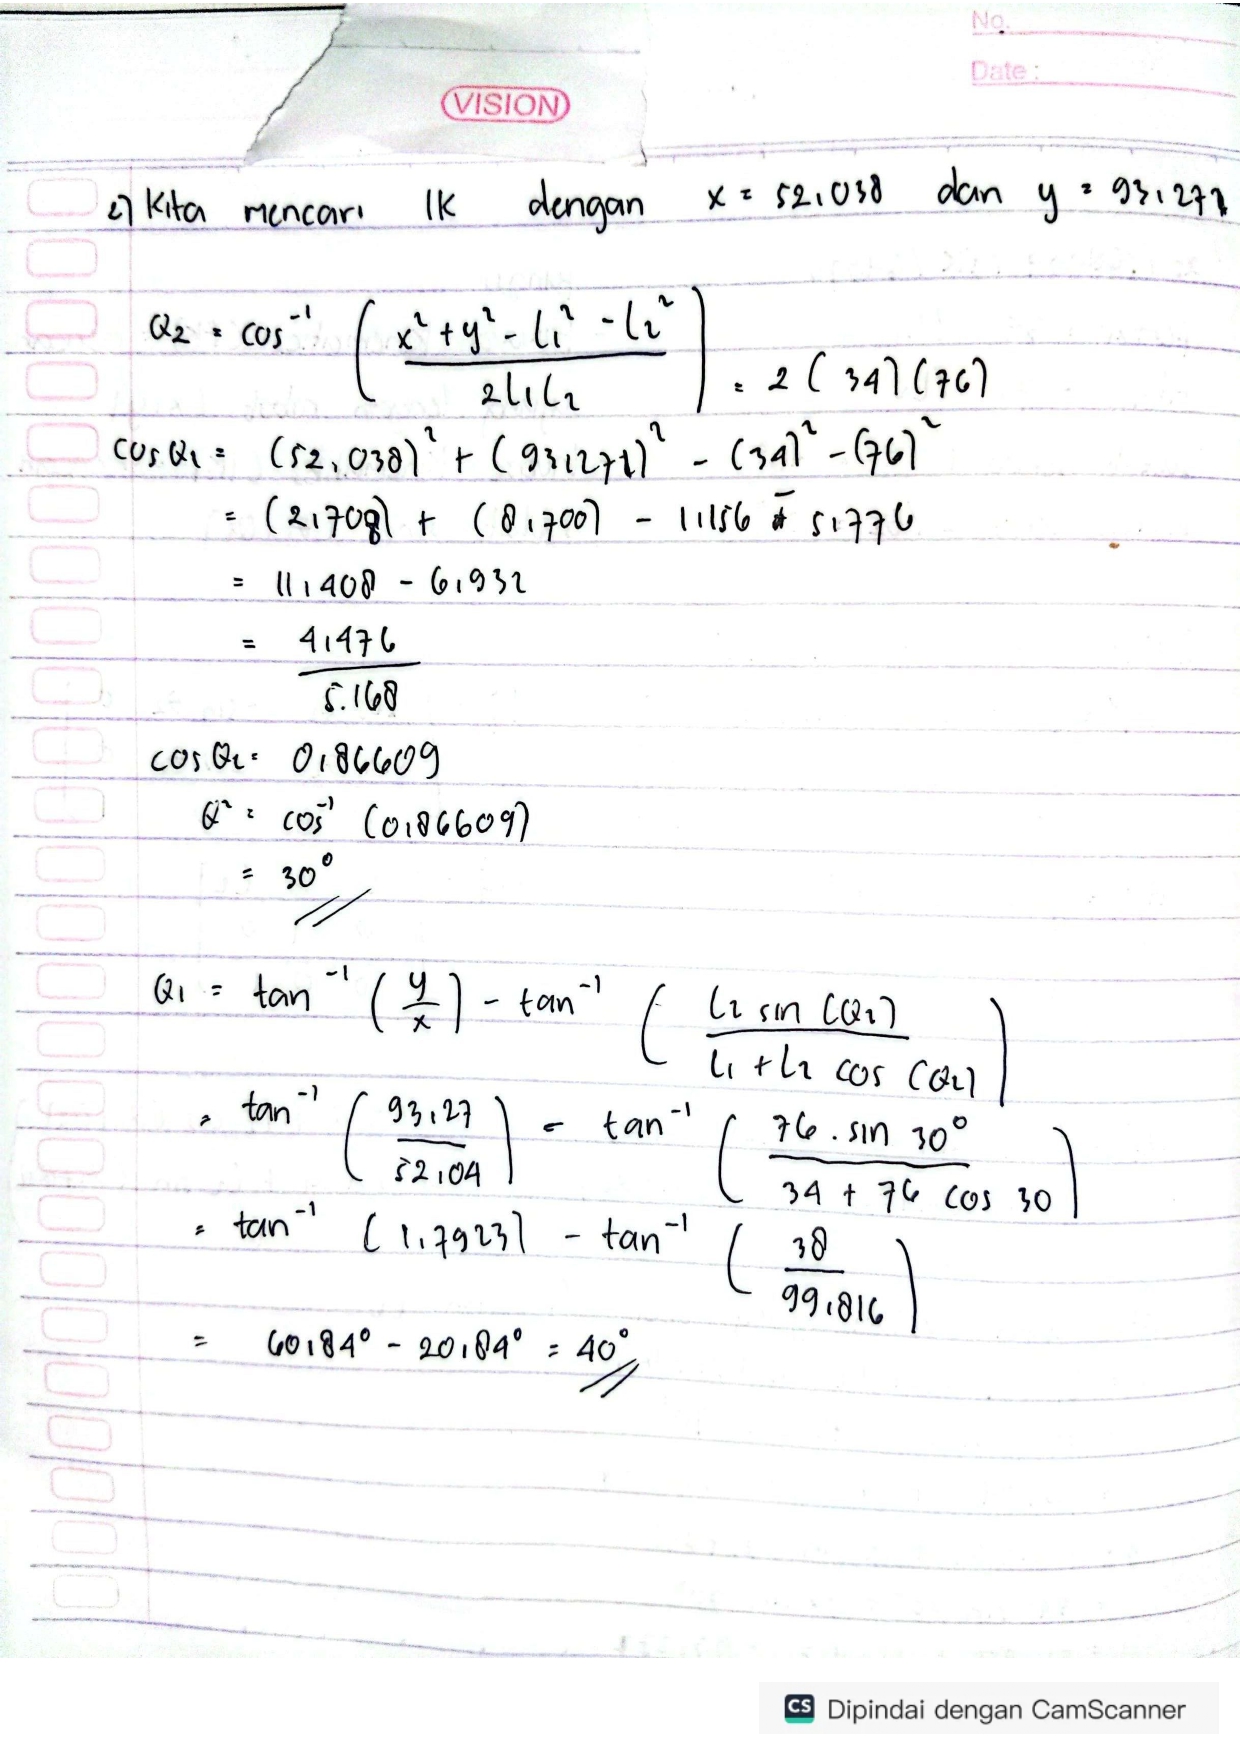 No.
Date :
VISION
2) Kita mencari IK dengan x = 52,038 dan y = 93,271
Q2 = cos⁻¹ ( x² + y² - L1² - L2² / 2L1L2 ) = 2 (34) (76)
cos Q2 = (52,038)² + (93,271)² - (34)² - (76)²
= (2,708) + (8,700) - 1,156 - 5,776
= 11,408 - 6,932
= 4,476 / 5.168
cos Q2 = 0,86609
Q² = cos⁻¹ (0,86609)
= 30°
Q1 = tan⁻¹ ( y / x ) - tan⁻¹ ( L2 sin (Q2) / L1 + L2 cos (Q2) )
= tan⁻¹ ( 93,27 / 52,04 ) - tan⁻¹ ( 76 . sin 30° / 34 + 76 cos 30 )
= tan⁻¹ ( 1,7923 ) - tan⁻¹ ( 38 / 99,816 )
= 60,84° - 20,84° = 40°
CS Dipindai dengan CamScanner